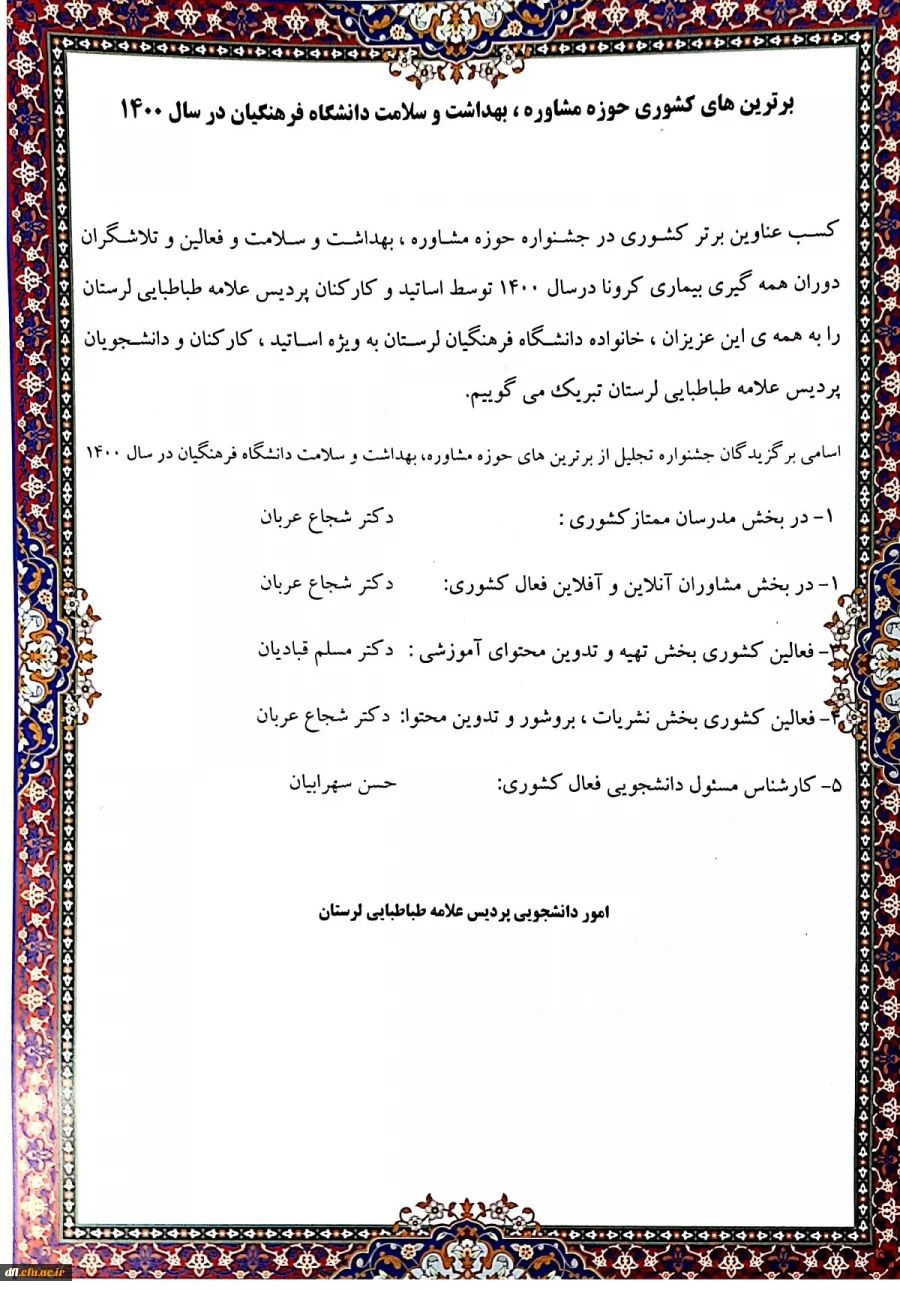 برترین های کشوری حوزه مشاوره ، بهداشت و سلامت دانشگاه فرهنگیان در سال ۱۴۰۰
کسب عناوین برتر کشوری در جشنواره حوزه مشاوره ، بهداشت و سلامت و فعالین و تلاشگران
دوران همه گیری بیماری کرونا درسال ۱۴۰۰ توسط اساتید و کارکنان پردیس علامه طباطبایی لرستان
را به همه ی این عزیزان ، خانواده دانشگاه فرهنگیان لرستان به ویژه اساتید ، کارکنان و دانشجویان
پردیس علامه طباطبایی لرستان تبریک می گوییم.
اسامی برگزیدگان جشنواره تجلیل از برترین های حوزه مشاوره، بهداشت و سلامت دانشگاه فرهنگیان در سال ۱۴۰۰
۱- در بخش مدرسان ممتازکشوری : دکتر شجاع عربان
۱- در بخش مشاوران آنلاین و آفلاین فعال کشوری: دکتر شجاع عربان
- فعالین کشوری بخش تهیه و تدوین محتوای آموزشی : دکتر مسلم قبادیان
۴- فعالین کشوری بخش نشریات ، بروشور و تدوین محتوا: دکتر شجاع عربان
۵- کارشناس مسئول دانشجویی فعال کشوری: حسن سهرابیان
امور دانشجویی پردیس علامه طباطبایی لرستان
dfl.cfu.ac.ir